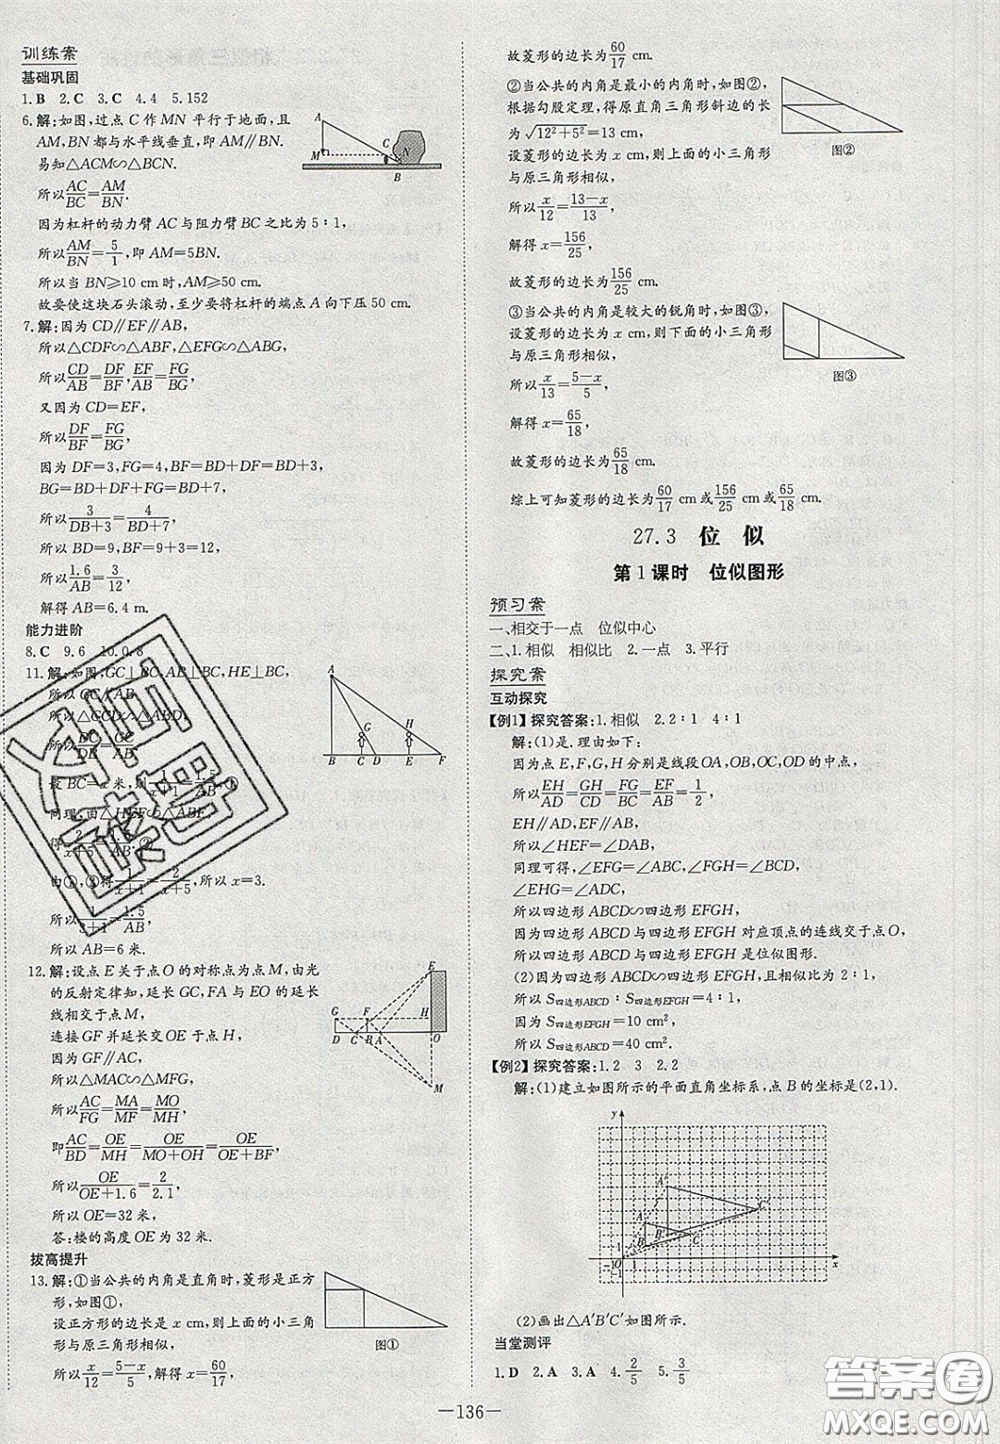 训练案
基础巩固
1.B 2.C 3.C 4.4 5.152
6.解:如图,过点C作MN平行于地面,且
AM,BN都与水平线垂直,即AM∥BN.
易知△ACM∽△BCN.
所以AC/BC=AM/BN.
因为杠杆的动力臂AC与阻力臂BC之比为5∶1,
所以AM/BN=5/1,即AM=5BN.
所以当BN≥10 cm时,AM≥50 cm.
故要使这块石头滚动,至少要将杠杆的端点A向下压50 cm.
7.解:因为CD∥EF∥AB,
所以△CDF∽△ABF,△EFG∽△ABG,
所以CD/AB=DF/BF,EF/AB=FG/BG,
又因为CD=EF,
所以DF/BF=FG/BG,
因为DF=3,FG=4,BF=BD+DF=BD+3,
BG=BD+DF+FG=BD+7,
所以3/(DB+3)=4/(BD+7),
所以BD=9,BF=9+3=12,
所以1.6/AB=3/12,
解得AB=6.4 m.
能力进阶
8.C 9.6 10.0.8
11.解:如图,GC⊥BC,AB⊥BC,HE⊥BC,
所以GC∥AB,
所以△GCD∽△ABD,
所以DC/DB=GC/AB,
设BC=x,则1/(x+1)=1.5/AB.①
同理:由△HEF∽△ABF,
得2/(x+5)=1.5/AB.②
由①,②得1/(x+1)=2/(x+5),所以x=3.
所以1/(3+1)=1.5/AB,
所以AB=6米.
12.解:设点E关于点O的对称点为点M,由光
的反射定律知,延长GC,FA与EO的延长
线相交于点M,
连接GF并延长交OE于点H,
因为GF∥AC,
所以△MAC∽△MFG,
所以AC/FG=MA/MF=MO/MH,
即AC/BD=OE/MH=OE/(MO+OH)=OE/(OE+BF),
所以OE/(OE+1.6)=2/2.1,
所以OE=32米,
答:楼的高度OE为32米.
拔高提升
13.解:①当公共的内角是直角时,菱形是正方
形,如图①,
设正方形的边长是x cm,则上面的小三角
形与原三角形相似,
所以x/12=(5-x)/5,解得x=60/17,
图①
故菱形的边长为60/17 cm.
②当公共的内角是最小的内角时,如图②,
根据勾股定理,得原直角三角形斜边的长
为√(12²+5²)=13 cm,
设菱形的边长为x cm,则上面的小三角形
与原三角形相似,
图②
所以x/12=(13-x)/13,
解得x=156/25,
故菱形的边长为156/25 cm.
③当公共的内角是较大的锐角时,如图③,
设菱形的边长为x cm,则下面的小三角形
与原三角形相似,
图③
所以x/13=(5-x)/5,
解得x=65/18,
故菱形的边长为65/18 cm.
综上可知菱形的边长为60/17 cm或156/25 cm或65/18 cm.
27.3 位似
第1课时 位似图形
预习案
一、相交于一点 位似中心
二、1.相似 相似比 2.一点 3.平行
探究案
互动探究
【例1】探究答案:1.相似 2.2∶1 4∶1
解:(1)是.理由如下:
因为点E,F,G,H是线段OA,OB,OC,OD的中点,
所以EH/AD=GH/CD=FG/BC=EF/AB=1/2,
EH∥AD,EF∥AB,
所以∠HEF=∠DAB,
同理可得,∠EFG=∠ABC,∠FGH=∠BCD,
∠EHG=∠ADC,
所以四边形ABCD∽四边形EFGH,
因为四边形ABCD与四边形EFGH对应顶点的连线交于点O,
所以四边形ABCD与四边形EFGH是位似图形.
(2)因为四边形ABCD∽四边形EFGH,且相似比为2∶1,
所以S四边形ABCD∶S四边形EFGH=4∶1,
因为S四边形EFGH=10 cm²,
所以S四边形ABCD=40 cm².
【例2】探究答案:1.2 3 2.2
解:(1)建立如图所示的平面直角坐标系,点B的坐标是(2,1).
(2)画出△A′B′C′如图所示.
当堂测评
1.D 2.A 3.A 4.2/5 5.3/5
—136—
答案圈
MXQE.COM